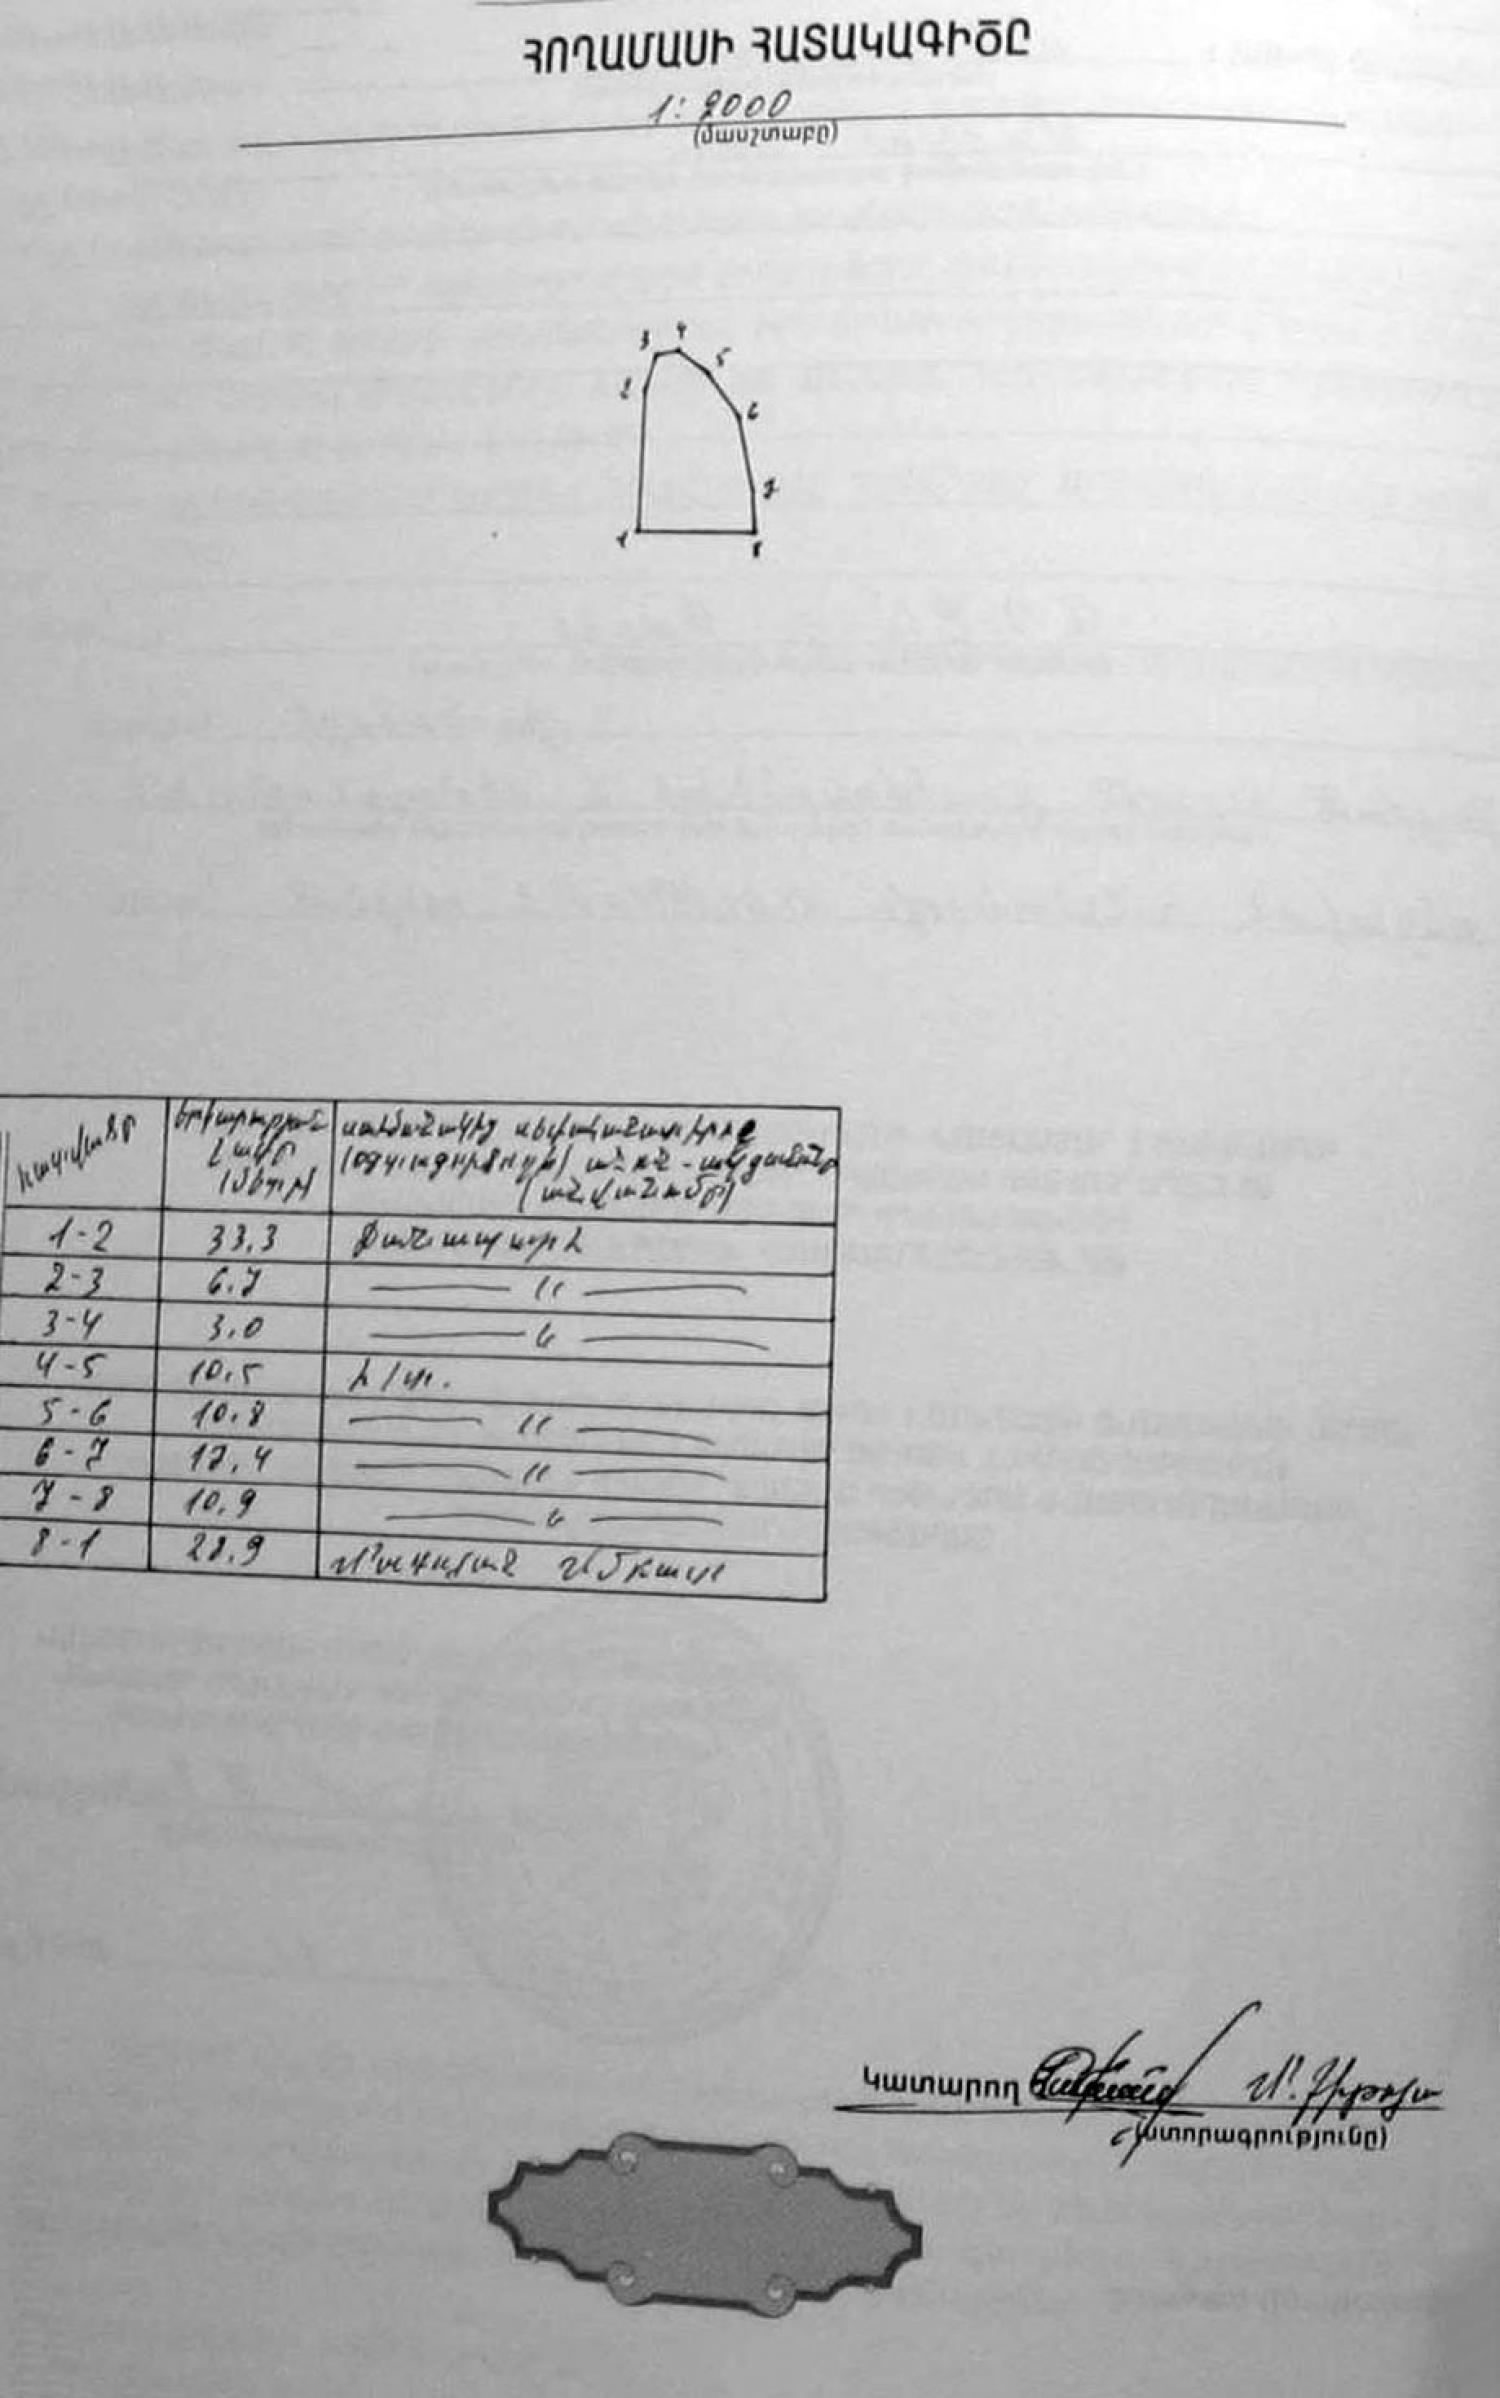 ՀՈՂԱՄԱՍԻ ՀԱՏԱԿԱԳԻԾԸ
1:2000
(մասշտաբը)
3 4
2 5
6
7
1 8
հատվածը երկարության սահմանակից սեփականատիրոջ
չափը (օգտագործողի) անուն-ազգանունը
(մետր) (անվանումը)
1-2 33,3 Ճանապարհ
2-3 6.7 —— 〃 ——
3-4 3,0 —— 〃 ——
4-5 10,5 հ/տ.
5-6 10,8 —— 〃 ——
6-7 17,4 —— 〃 ——
7-8 10,9 —— 〃 ——
8-1 28,9
Կատարող Մ.
(ստորագրությունը)